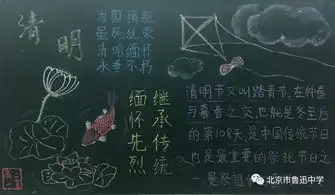 清明
为国捐躯
虽死犹荣
清明缅怀
永垂不朽
继承传统
缅怀先烈
清明节又叫踏青节,在仲春
与暮春之交,也就是冬至后
的第108天,是中国传统节日
也是最重要的祭祀节日之
一,是祭祖
北京市鲁迅中学